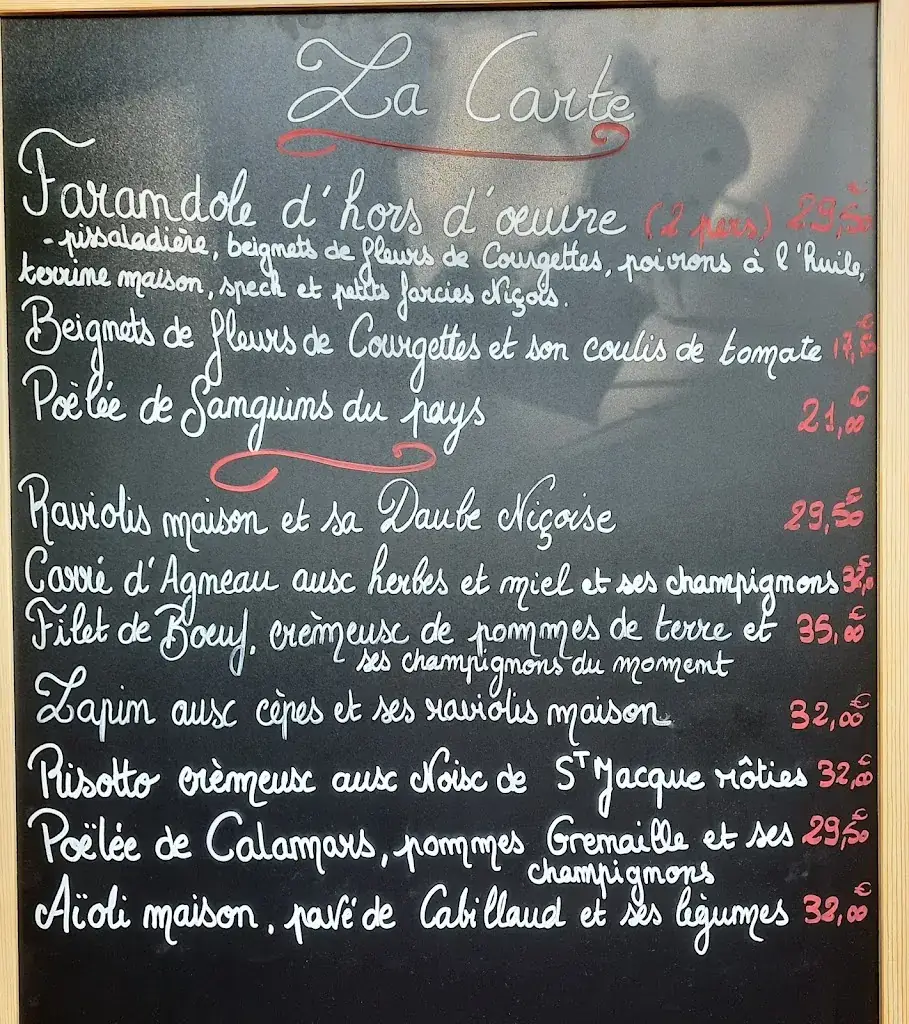 La Carte
Farandole d'hors d'œuvre (2 pers) 29,50€
- pissaladière, beignets de fleurs de Courgettes, poivrons à l'Huile,
terrine maison, speck et petits farcies Niçois.
Beignets de fleurs de Courgettes et son coulis de tomate
Poèlée de Sanguins du pays 21,00€
Raviolis maison et sa Daube Niçoise 29,50€
Carré d'Agneau aux herbes et miel et ses champignons
Filet de Boeuf, crèmeux de pommes de terre et 35,00€
ses champignons du moment
Lapin aux cèpes et ses raviolis maison 32,00€
Risotto crèmeux aux Noix de ST Jacque rôties 32,00€
Poëlée de Calamars, pommes Grenaille et ses 29,50€
champignons
Aïoli maison, pavé de Cabillaud et ses légumes 32,00€